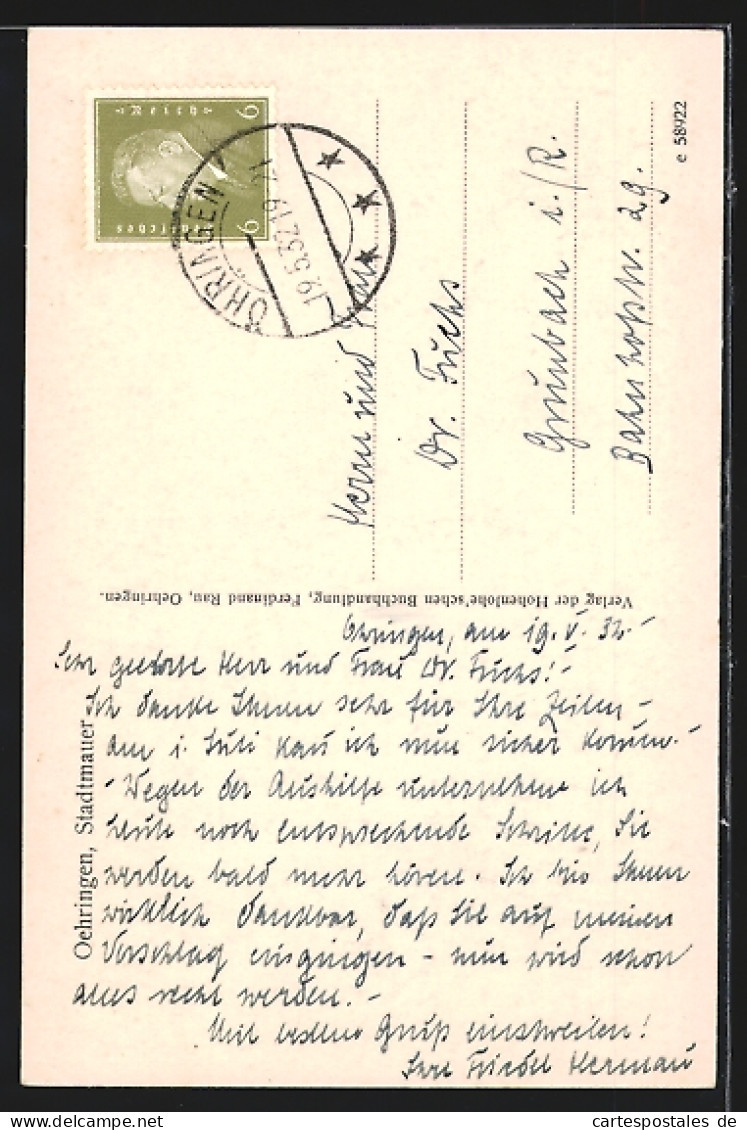 6 Deutsches Reich 6
ÖHRINGEN
19.5.32.19
Herrn und Frau
Dr. Fuchs
Grunbach i./R.
Bahnhofstr. 29.
e 58922
Verlag der Hohenlohe'schen Buchhandlung, Ferdinand Rau, Oehringen.
Oehringen, Stadtmauer
Öhringen, am 19. V. 32.-
Sehr geehrte Herr und Frau Dr. Fuchs!-
Ich danke Ihnen sehr für Ihre Zeilen -
am 1. Juli kann ich nun sicher kommen.-
- Wegen der Aushilfe unternehme ich
heute noch entsprechende Schritte, Sie
werden bald mehr hören. Ich bin Ihnen
wirklich dankbar, daß Sie auf meinen
Vorschlag eingingen - nun wird schon
alles recht werden.-
Mit bestem Gruß einstweilen!
Ihre Hermann
cartespostales de